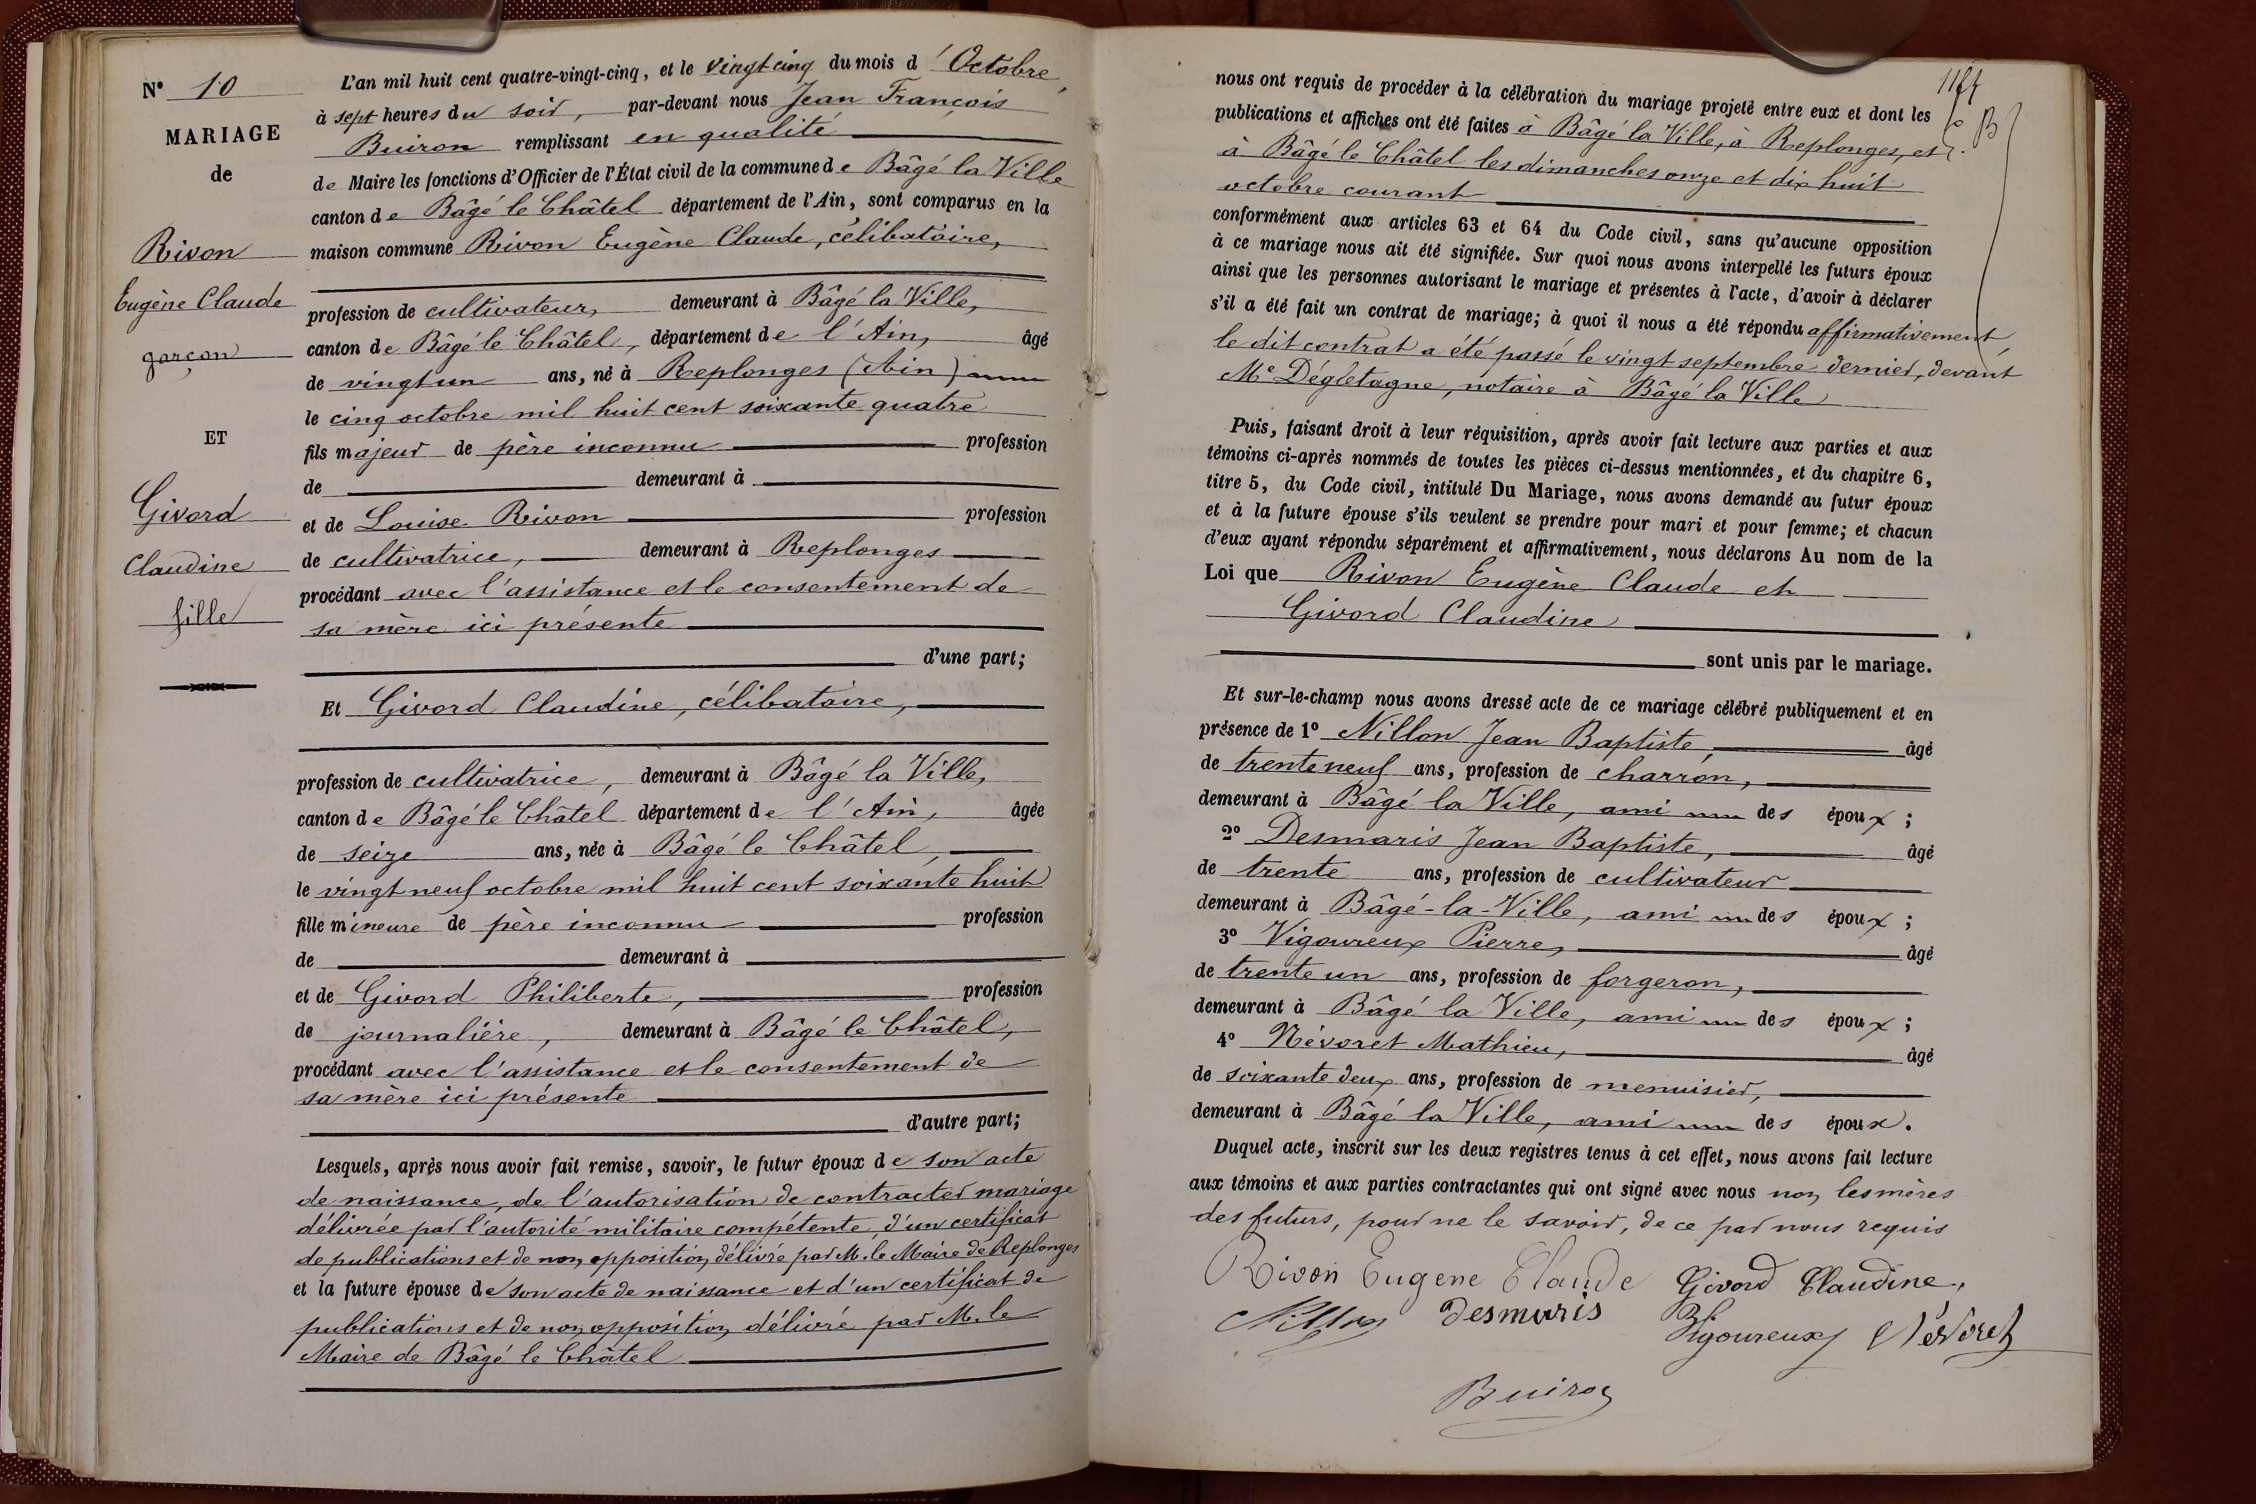 N° 10
MARIAGE
de
Rivon
Eugène Claude
garçon
ET
Givord
Claudine
fille
L'an mil huit cent quatre-vingt-cinq, et le vingt cinq du mois d'Octobre,
à sept heures du soir, par-devant nous Jean François
Buiron remplissant en qualité
de Maire les fonctions d'Officier de l'État civil de la commune de Bâgé la Ville
canton de Bâgé le Châtel département de l'Ain, sont comparus en la
maison commune Rivon Eugène Claude, célibataire,
profession de cultivateur, demeurant à Bâgé la Ville,
canton de Bâgé le Châtel, département de l'Ain, âgé
de vingt un ans, né à Replonges (Ain)
le cinq octobre mil huit cent soixante quatre
fils majeur de père inconnu profession
de demeurant à
et de Louise Rivon profession
de cultivatrice, demeurant à Replonges
procédant avec l'assistance et le consentement de
sa mère ici présente
d'une part;
Et Givord Claudine, célibataire,
profession de cultivatrice, demeurant à Bâgé la Ville,
canton de Bâgé le Châtel département de l'Ain, âgée
de seize ans, née à Bâgé le Châtel,
le vingt neuf octobre mil huit cent soixante huit
fille mineure de père inconnu profession
de demeurant à
et de Givord Philiberte, profession
de journalière, demeurant à Bâgé le Châtel,
procédant avec l'assistance et le consentement de
sa mère ici présente
d'autre part;
Lesquels, après nous avoir fait remise, savoir, le futur époux de son acte
de naissance, de l'autorisation de contracter mariage
délivrée par l'autorité militaire compétente, d'un certificat
de publications et de non opposition délivré par M. le Maire de Replonges
et la future épouse de son acte de naissance et d'un certificat de
publications et de non opposition délivré par M. le
Maire de Bâgé le Châtel
nous ont requis de procéder à la célébration du mariage projeté entre eux et dont les
publications et affiches ont été faites à Bâgé la Ville, à Replonges, et
à Bâgé le Châtel les dimanches onze et dix huit
octobre courant
conformément aux articles 63 et 64 du Code civil, sans qu'aucune opposition
à ce mariage nous ait été signifiée. Sur quoi nous avons interpellé les futurs époux
ainsi que les personnes autorisant le mariage et présentes à l'acte, d'avoir à déclarer
s'il a été fait un contrat de mariage; à quoi il nous a été répondu affirmativement,
le dit contrat a été passé le vingt septembre dernier, devant
Me Dégletagne, notaire à Bâgé la Ville
Puis, faisant droit à leur réquisition, après avoir fait lecture aux parties et aux
témoins ci-après nommés de toutes les pièces ci-dessus mentionnées, et du chapitre 6,
titre 5, du Code civil, intitulé Du Mariage, nous avons demandé au futur époux
et à la future épouse s'ils veulent se prendre pour mari et pour femme; et chacun
d'eux ayant répondu séparément et affirmativement, nous déclarons Au nom de la
Loi que Rivon Eugène Claude et
Givord Claudine
sont unis par le mariage.
Et sur-le-champ nous avons dressé acte de ce mariage célébré publiquement et en
présence de 1° Nillon Jean Baptiste, âgé
de trente neuf ans, profession de charron,
demeurant à Bâgé la Ville, ami des époux;
2° Desmaris Jean Baptiste, âgé
de trente ans, profession de cultivateur
demeurant à Bâgé-la-Ville, ami des époux;
3° Vigoureux Pierre, âgé
de trente un ans, profession de forgeron,
demeurant à Bâgé la Ville, ami des époux;
4° Névoret Mathieu, âgé
de soixante deux ans, profession de menuisier,
demeurant à Bâgé la Ville, ami des époux.
Duquel acte, inscrit sur les deux registres tenus à cet effet, nous avons fait lecture
aux témoins et aux parties contractantes qui ont signé avec nous non les mères
des futurs, pour ne le savoir, de ce par nous requis
Rivon Eugene Claude Givord Claudine,
Nillon Desmaris Vigoureux Névoret
Buiron